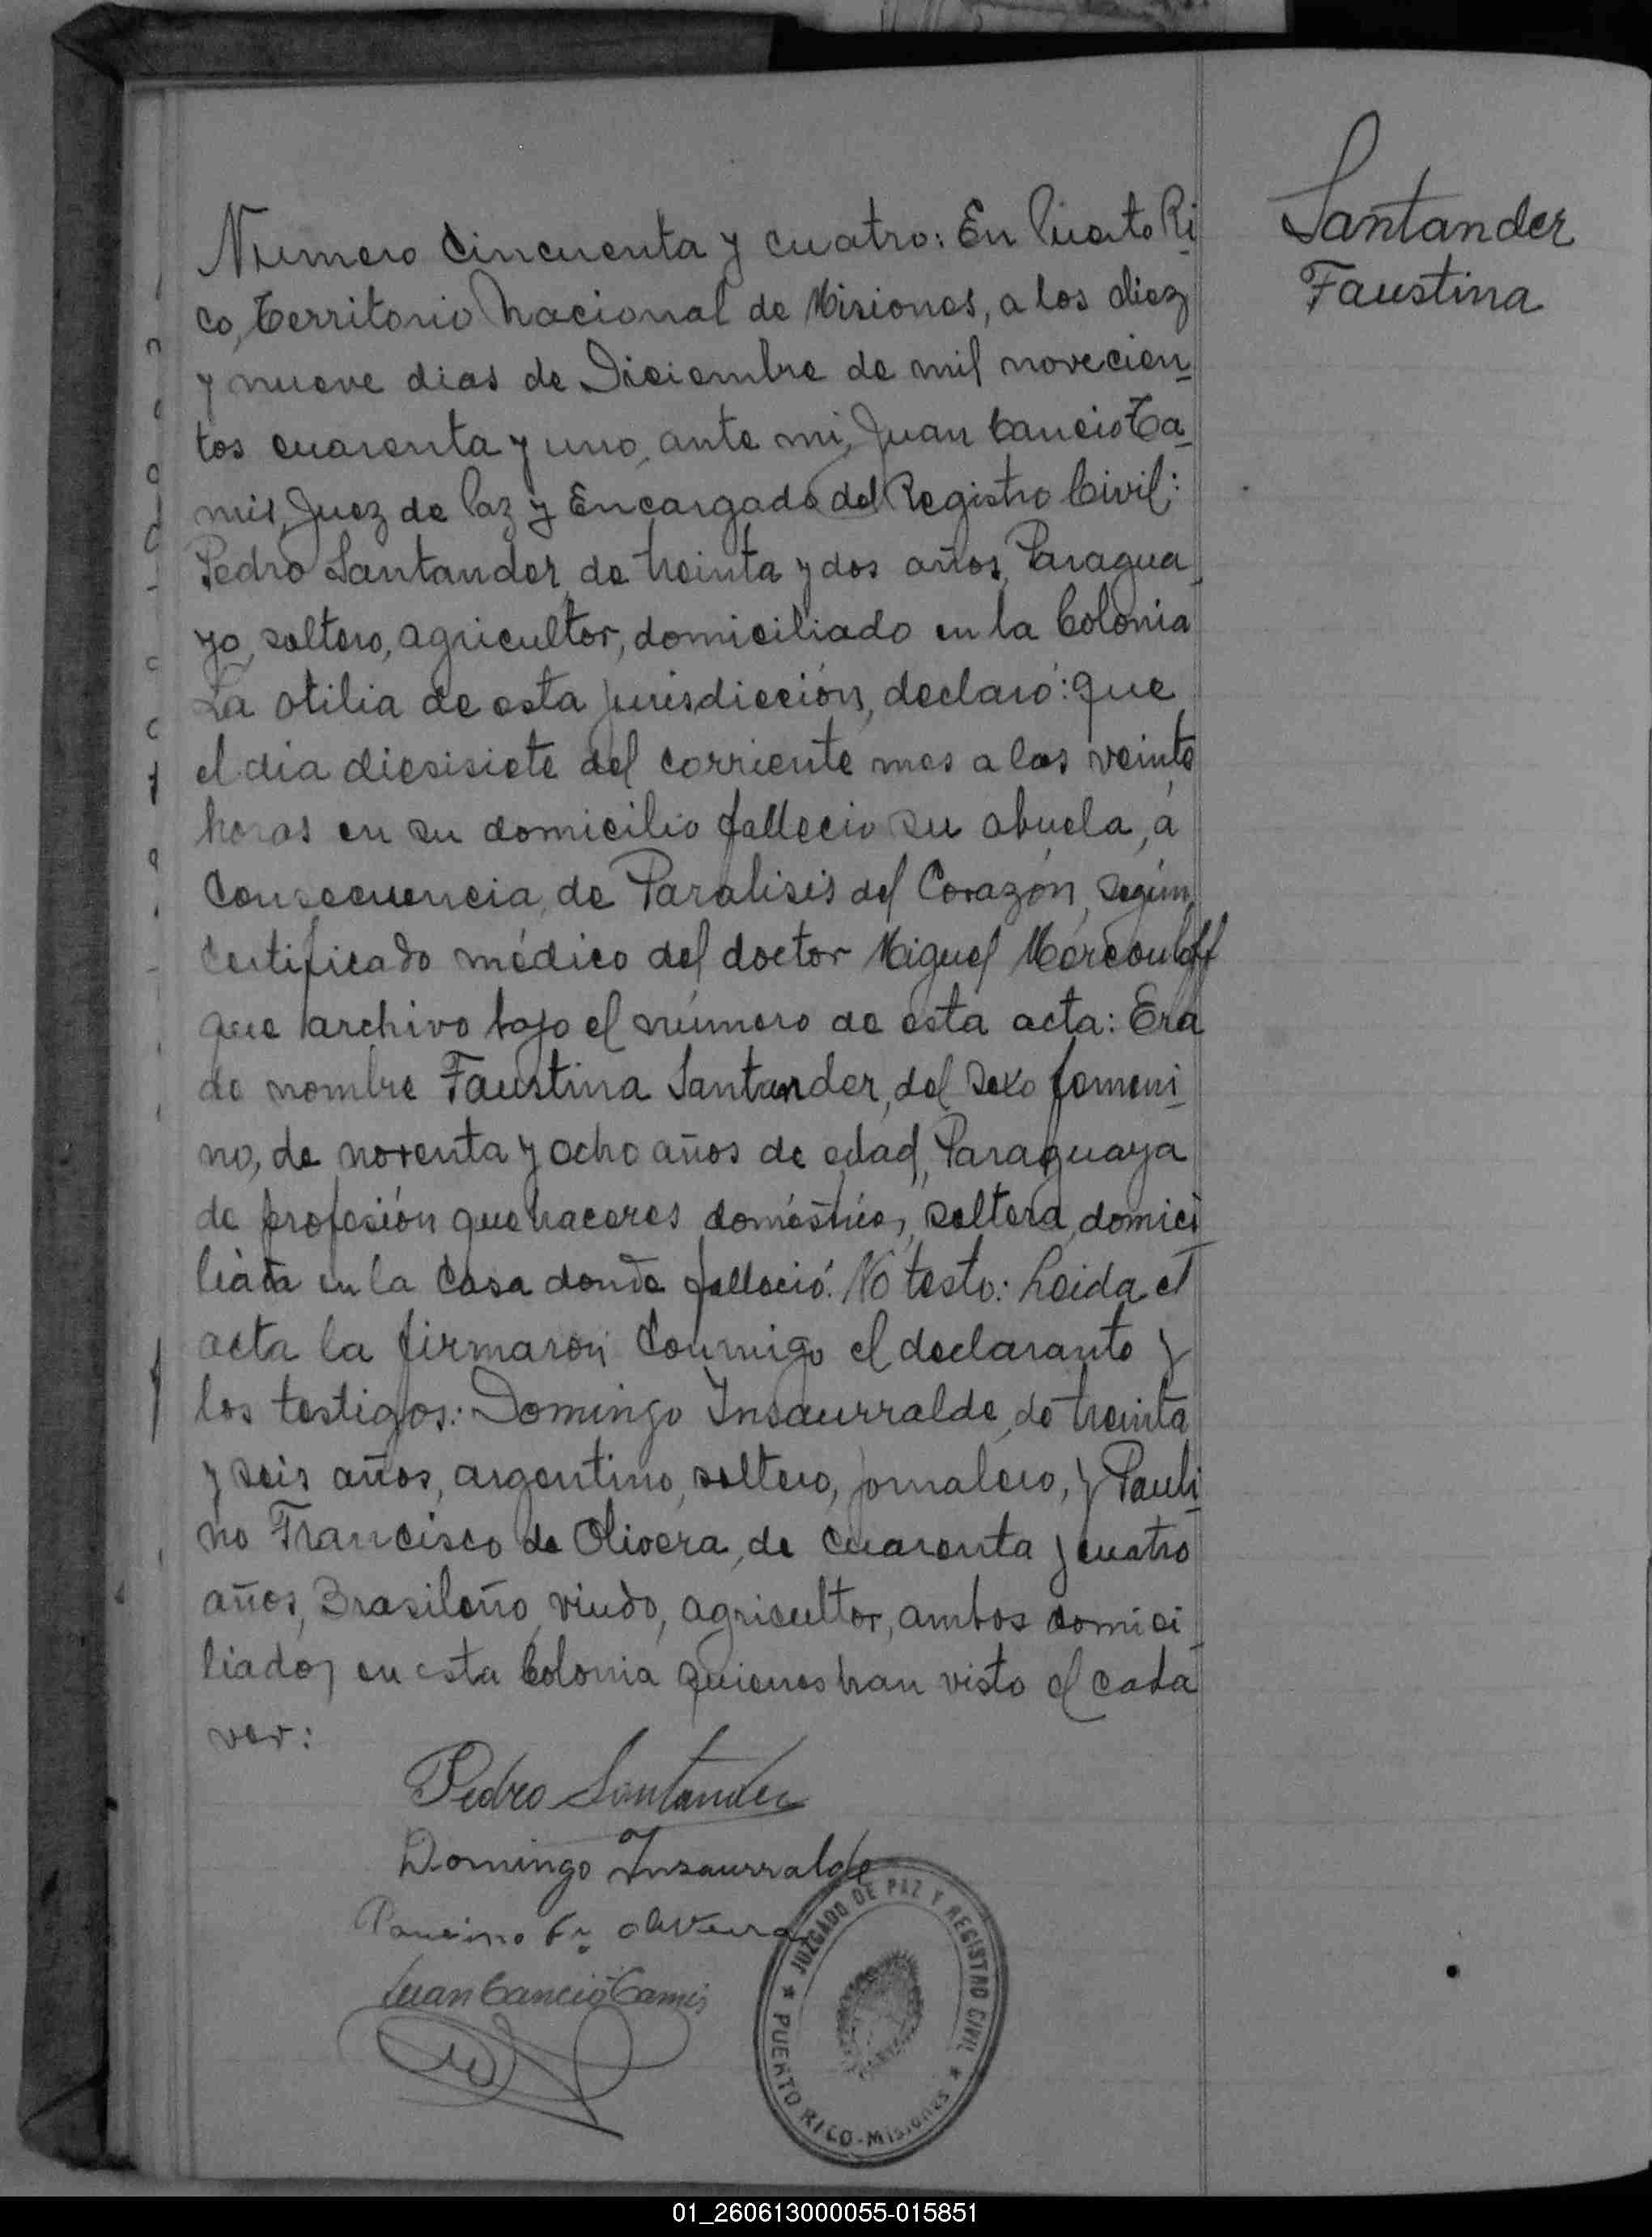 Santander
Faustina
Numero Cincuenta y cuatro: En Puerto Ri
co, Territorio Nacional de Misiones, a los diez
y nueve dias de Diciembre de mil novecien
tos cuarenta y uno, ante mi, Juan Cancio Ca
mis, Juez de Paz y Encargado del Registro Civil:
Pedro Santander, de treinta y dos años, Paragua
yo, soltero, agricultor, domiciliado en la Colonia
La otilia de esta jurisdicción, declaró: que
el dia diesisiete del corriente mes a las veinte
horas en su domicilio fallecio su abuela, á
Consecuencia, de Paralisis del Corazón, según
Certificado médico del doctor Miguel
que archivo bajo el número de esta acta: Era
de nombre Faustina Santander, del sexo femeni
no, de noventa y ocho años de edad, Paraguaya
de profesión quehaceres domésticos, soltera, domici
liada en la Casa donde falleció. No testo: Leida el
acta la firmaron Conmigo el declarante y
los testigos: Domingo Insaurralde, de treinta
y seis años, argentino, soltero, jornalero, y Pauli
no Francisco de Olivera, de Cuarenta y cuatro
años, Brasileño, viudo, agricultor, ambos domici
liados en esta Colonia quienes han visto el cada
ver:
Pedro Santander
Domingo Insaurralde
Olivera
Juan Cancio Camis
JUZGADO DE PAZ Y REGISTRO CIVIL
PUERTO RICO-MISIONES
01_260613000055-015851